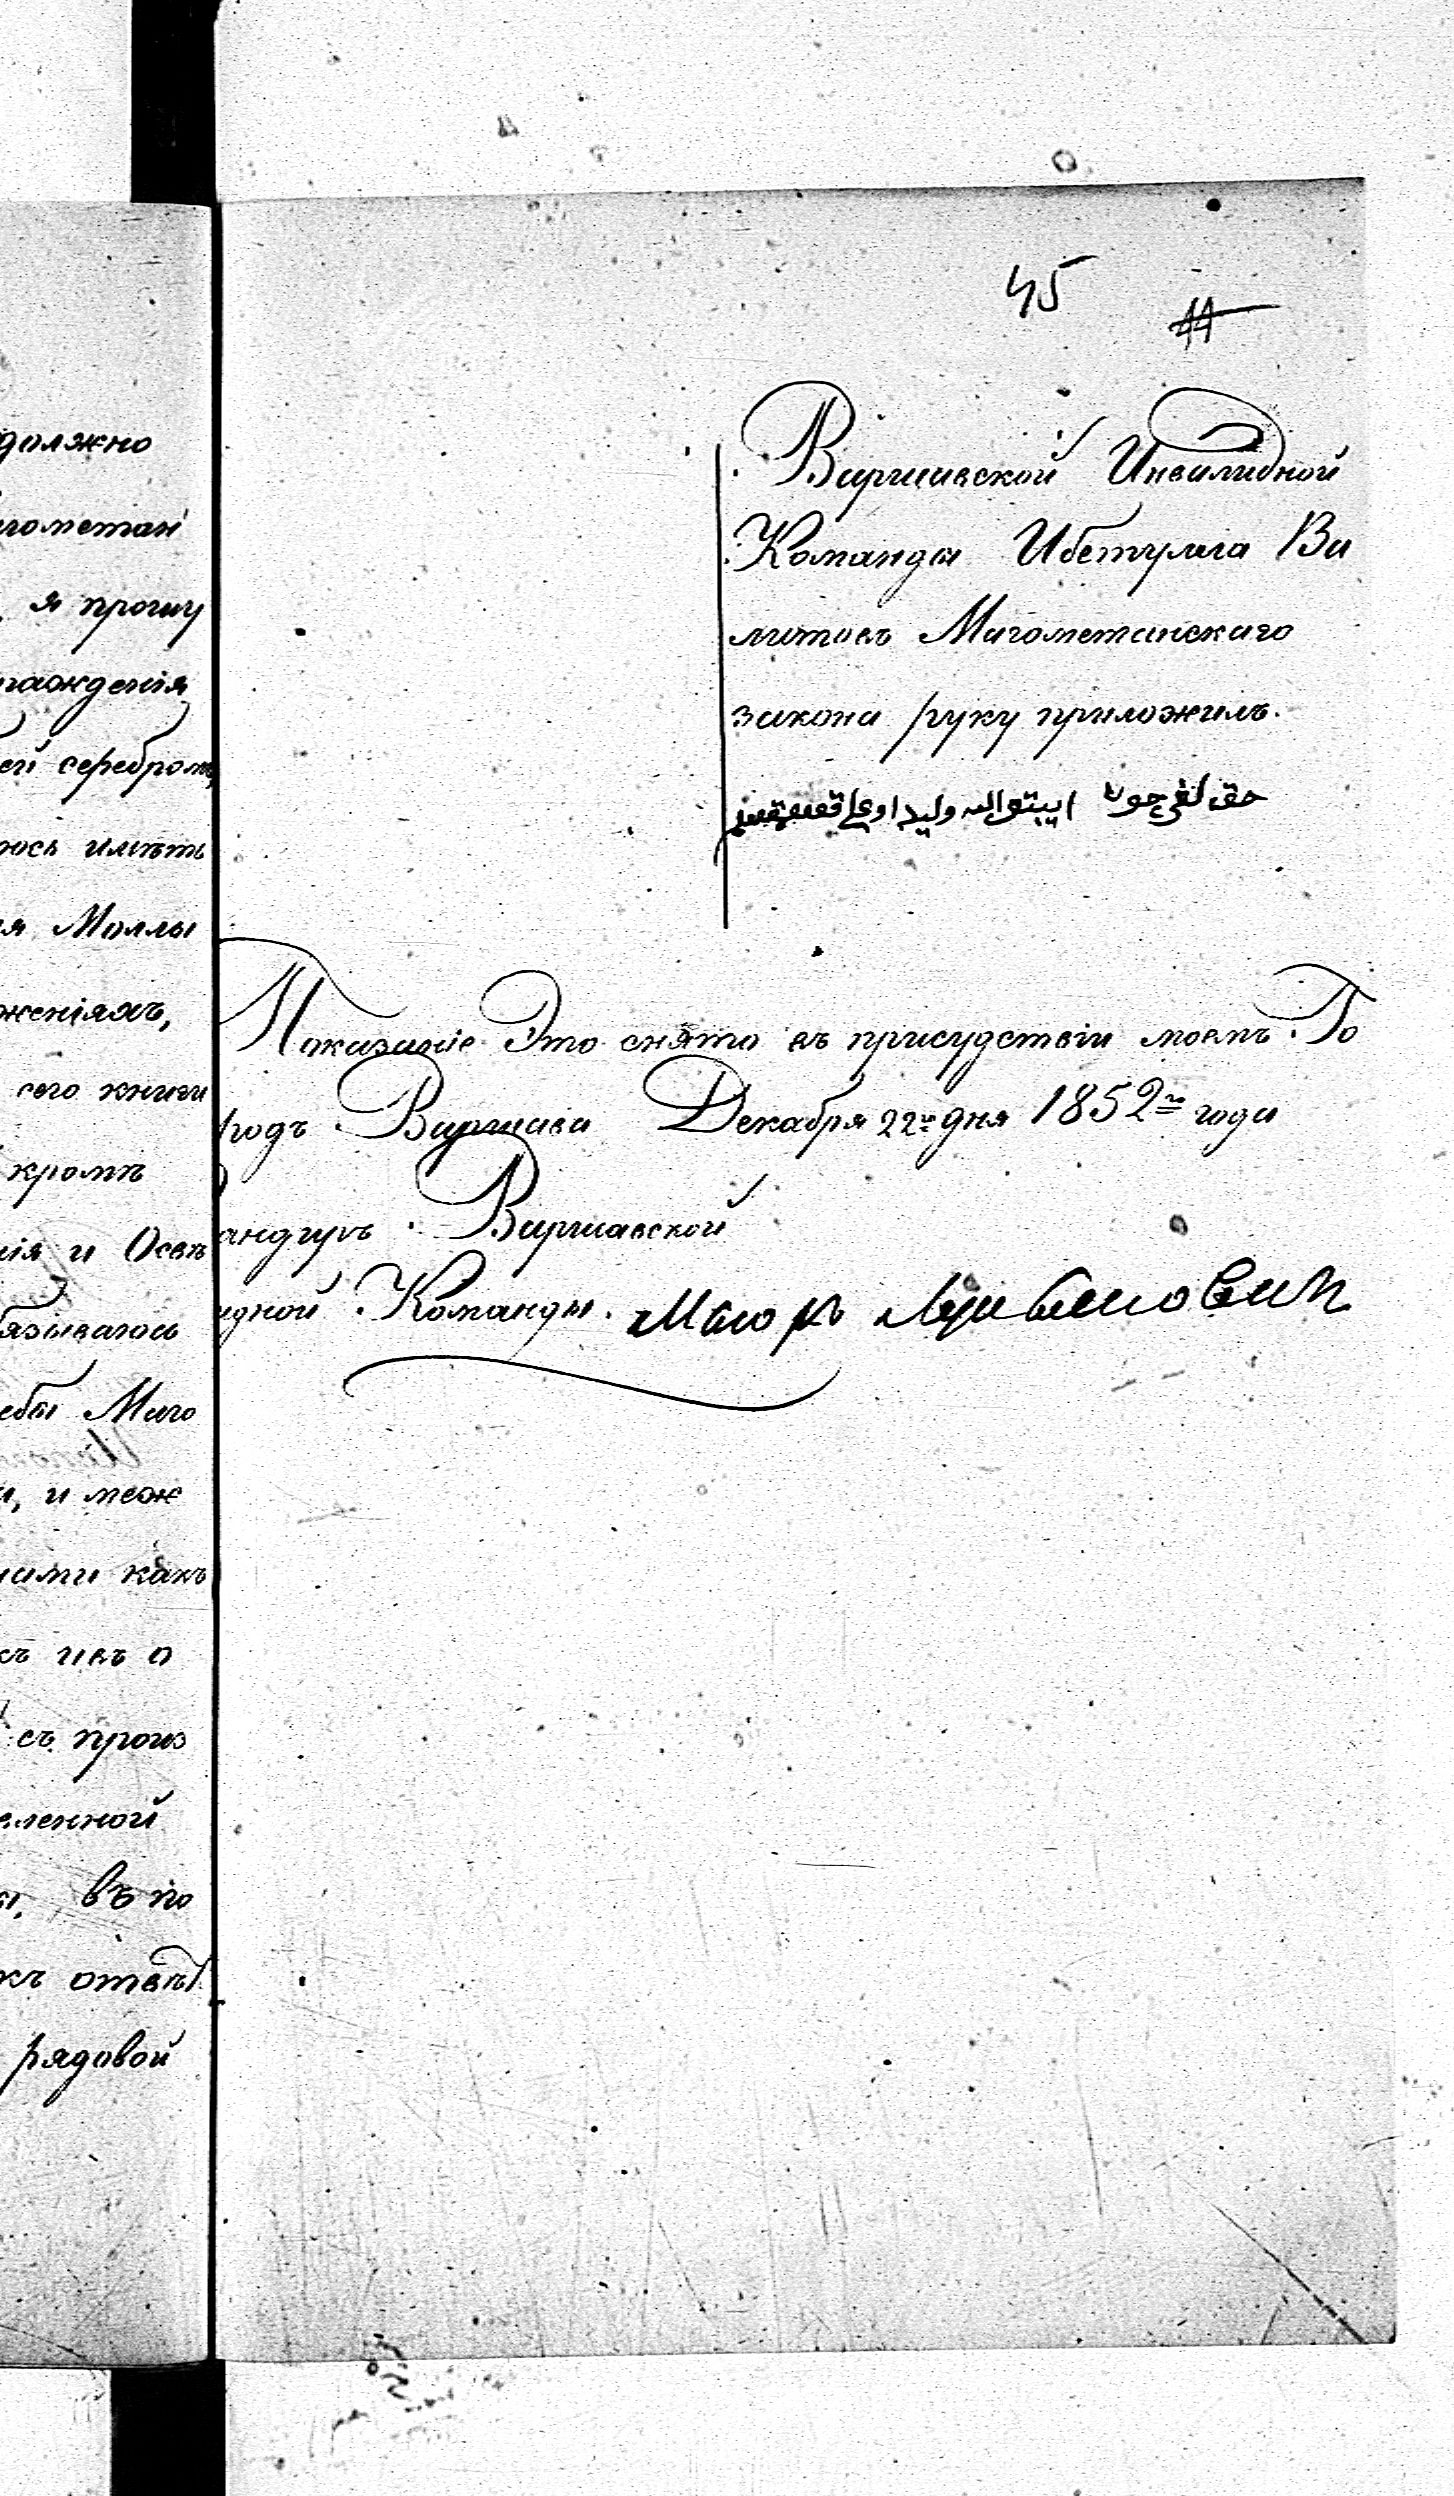 45
44
Варшавской Инвалидной
Команды Ибетулла Ва
литовъ Магометанскаго
закона руку приложилъ.
حق لغی چون ابیتواللہ ولید اوغلی
Показаніе Это снято въ присудствіи моемъ. Го
родъ Варшава Декабря 22го дня 1852го года
андиръ Варшавской
идной Команды. Маіоръ
должно
гометан
я прошу
гражденія
ей серебромъ,
юсь иметь
я Моллы
женіяхъ,
сего книги
кроме
ія и Осве
бязываюсь
ебы Маго
и, и меж
ними какъ
съ ивъ о
съ произ
еленной
въ по
къ ответ
рядовой